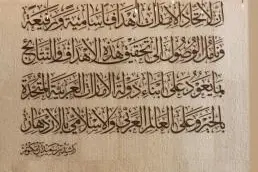 إن لاتحاد الإمارات أهدافا سامية ورفيعة
وتأمل الوصول إلى تحقيق هذه الأهداف والنتائج
بما يعود على أبناء دولة الإمارات العربية المتحدة
بالخير وعلى العالم العربي والإسلامي بالازدهار
راشد بن سعيد آل مكتوم